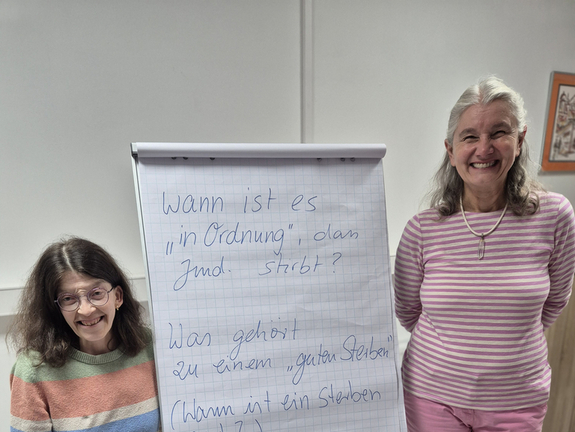 Wann ist es
„in Ordnung", dass
Jmd. stirbt?
Was gehört
zu einem „guten Sterben"
(Wann ist ein Sterben